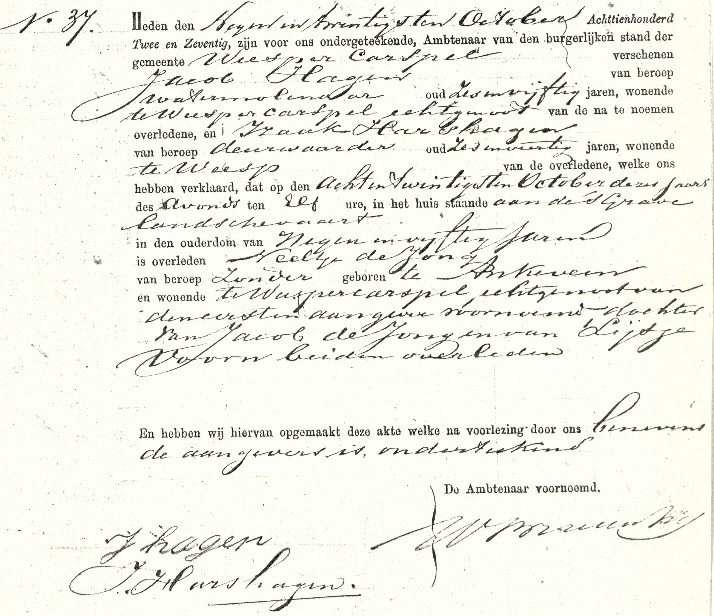 No. 37.
Heden den Negen en twintigsten October Achttienhonderd
Twee en Zeventig, zijn voor ons ondergeteekende, Ambtenaar van den burgerlijken stand der
gemeente Weespercarspel verschenen
Jacob Hagen van beroep
watermolenaar oud Zes en vijftig jaren, wonende
te Weespercarspel echtgenoot van de na te noemen
overledene, en Izaak Harshagen
van beroep deurwaarder oud Zes en veertig jaren, wonende
te Weesp van de overledene, welke ons
hebben verklaard, dat op den achtentwintigsten October dezes jaars
des Avonds ten Elf ure, in het huis staande aan de 's Grave
landschevaart
in den ouderdom van Negen en vijftig jaren
is overleden Neeltje de Jong
van beroep Zonder geboren te Ankeveen
en wonende te Weespercarspel echtgenoot van
den eersten aangever voornoemd dochter
van Jacob de Jong en van Lijsje
Voorn beiden overleden
En hebben wij hiervan opgemaakt deze akte welke na voorlezing door ons benevens
de aangevers is onderteekend
De Ambtenaar voornoemd.
J hagen
J. Harshagen.